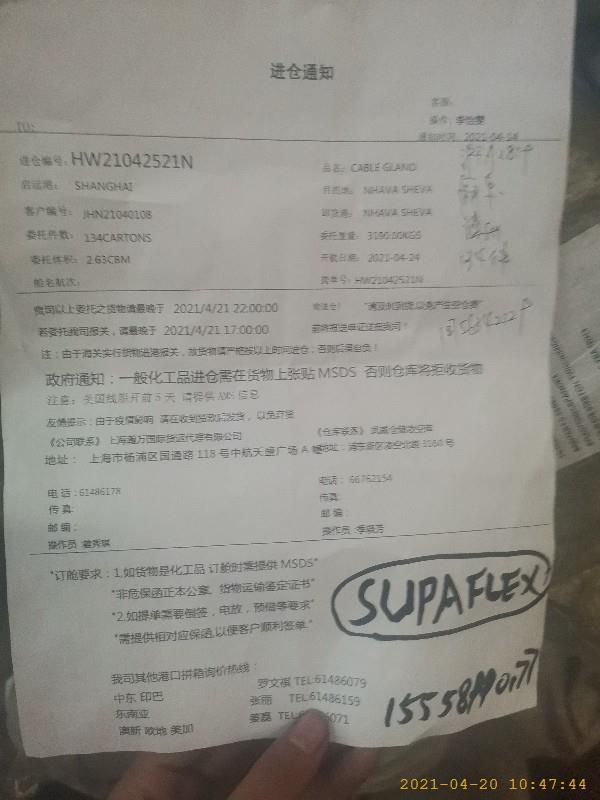 进仓通知
客服:
操作: 李怡雯
通知时间: 2021-04-14
TO:
进仓编号: HW21042521N
品名: CABLE GLAND
启运港: SHANGHAI
目的地: NHAVA SHEVA
客户编号: JHN21040108
卸货港: NHAVA SHEVA
委托件数: 134CARTONS
委托重量: 3190.00KGS
委托体积: 2.63CBM
开航日期: 2021-04-24
船名航次:
提单号: HW21042521N
贵司以上委托之货物请最晚于 2021/4/21 22:00:00
若委托我司报关,请最晚于 2021/4/21 17:00:00
前将报关单证送抵我司!
注:由于海关实行货物进港报关,故货物请严格按以上时间进仓,否则后果自负!
政府通知:一般化工品进仓需在货物上张贴 MSDS 否则仓库将拒收货物
注意:美国线船开前 5 天 请提供 AMS 信息
友情提示:由于疫情影响 请在收到货款后发货,以免弃货
《公司联系》上海瀚万国际货运代理有限公司
《仓库联系》
地址: 上海市杨浦区国通路 118 号中航天盛广场 A
地址: 浦东新区凌空北路 3160 号
电话:61486178
电话: 66762154
传真:
传真:
邮编:
邮编:
操作员
操作员
"订舱要求:1.如货物是化工品 订舱时需提供 MSDS"
"非危保函正本公章,货物运输鉴定证书"
"2.如提单需要倒签,电放,预借等要求"
"需提供相对应保函,以便客户顺利签单."
SUPAFLEX
我司其他港口拼箱询价热线:
中东 印巴 罗文祺 TEL:61486079
东南亚 张丽 TEL:61486159
澳新 欧地 美加 姜磊 TEL: 6071
2021-04-20 10:47:44